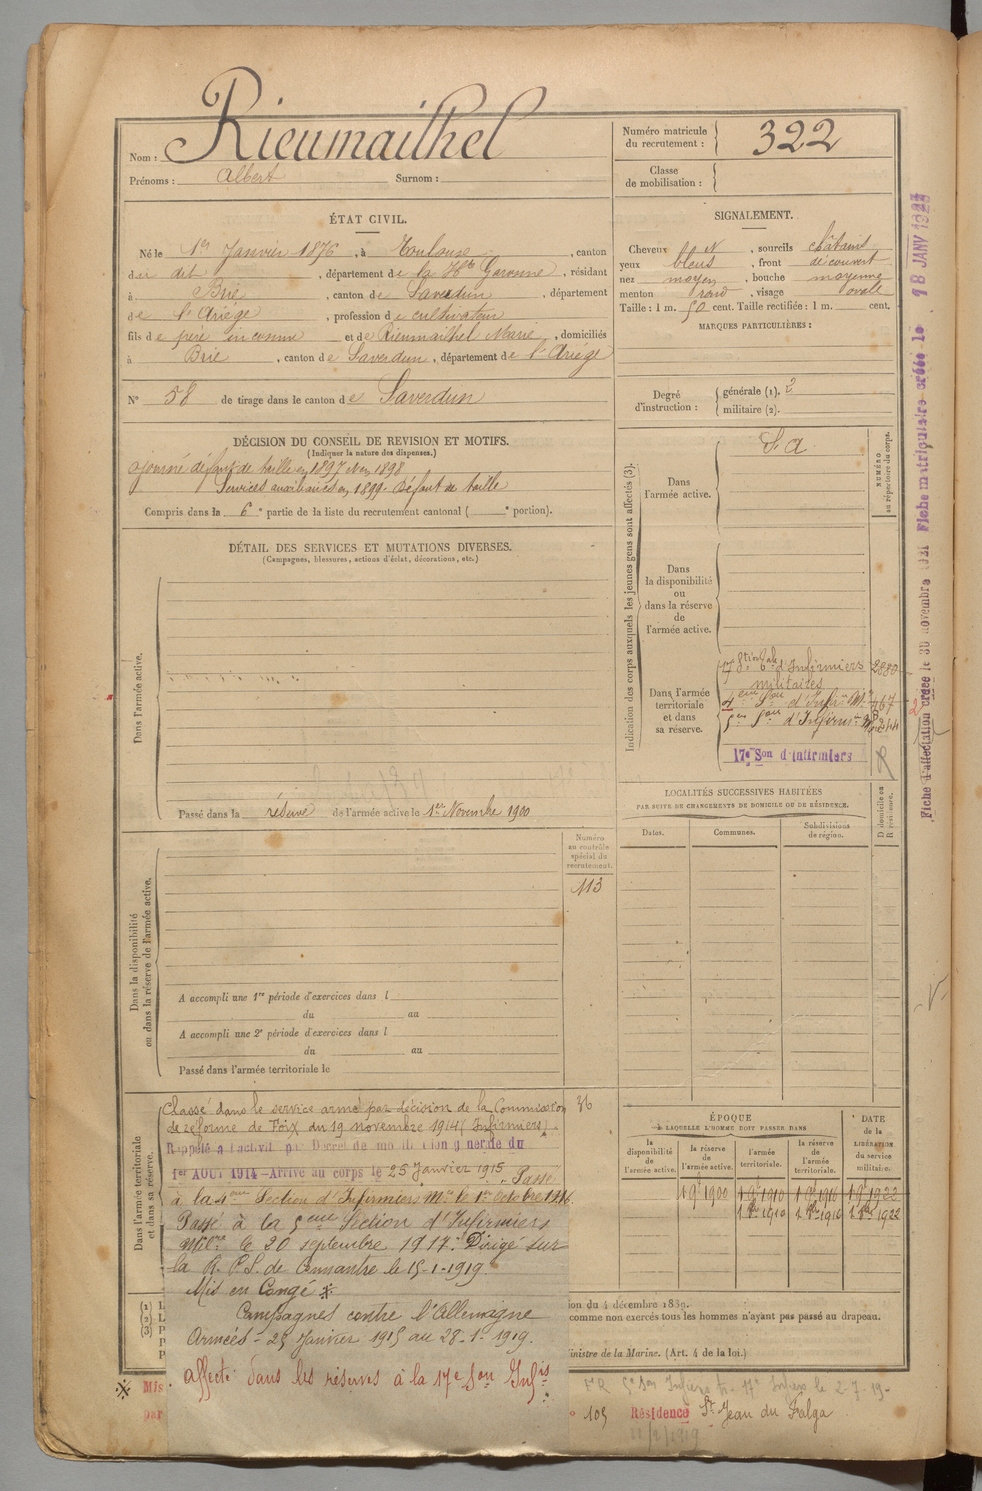 Nom : Rieumailhel
Prénoms : Albert Surnom :
Numéro matricule du recrutement : 322
Classe de mobilisation :
ÉTAT CIVIL.
Né le 1er Janvier 1876, à Toulouse, canton
du dit, département de la Hte Garonne, résidant
à Brie, canton de Saverdun, département
de l'Ariège, profession de cultivateur
fils de père inconnu et de Rieumailhel Marie, domiciliés
à Brie, canton de Saverdun, département de l'Ariége
N° 58 de tirage dans le canton de Saverdun
SIGNALEMENT.
Cheveux N, sourcils châtains
yeux bleus, front découvert
nez moyen, bouche moyenne
menton rond, visage ovale
Taille : 1 m. 50 cent. Taille rectifiée : 1 m. cent.
MARQUES PARTICULIÈRES :
Degré d'instruction : générale (1). 2
militaire (2).
DÉCISION DU CONSEIL DE REVISION ET MOTIFS.
(Indiquer la nature des dispenses.)
ajourné défaut de taille en 1897 et en 1898
Services auxiliaires en 1899. Défaut de taille
Compris dans la 6e partie de la liste du recrutement cantonal ( e portion).
DÉTAIL DES SERVICES ET MUTATIONS DIVERSES.
(Campagnes, blessures, actions d'éclat, décorations, etc.)
Dans l'armée active.
Passé dans la réserve de l'armée active le 1er Novembre 1900
Indication des corps auxquels les jeunes gens sont affectés (3).
NUMÉRO au répertoire du corps.
Dans l'armée active.
S. A
Dans la disponibilité ou dans la réserve de l'armée active.
Dans l'armée territoriale et dans sa réserve.
d'Infirmiers
militaires
4eme Son d'Infir. M. 467
5eme Son d'Infirm. 344
17e Son d'infirmiers
R
LOCALITÉS SUCCESSIVES HABITÉES
PAR SUITE DE CHANGEMENTS DE DOMICILE OU DE RÉSIDENCE.
Dates. Communes. Subdivisions de région. D domicile ou R résidence.
Dans la disponibilité ou dans la réserve de l'armée active.
Numéro au contrôle spécial du recrutement.
113
A accompli une 1re période d'exercices dans l
du au
A accompli une 2e période d'exercices dans l
du au
Passé dans l'armée territoriale le
Dans l'armée territoriale et dans sa réserve.
Classé dans le service armé par décision de la Commission 36
de réforme de Foix du 19 novembre 1914 (Infirmiers).
Rappelé à l'activité par Décret de mobilisation générale du
1er AOUT 1914 - Arrivé au corps le 25 Janvier 1915. Passé
à la 4eme Section d'Infirmiers Mres le 1er Octobre 1916.
Passé à la 5eme Section d'Infirmiers
Milres le 20 septembre 1917. Dirigé sur
la R. P. S. de Connantre le 15-1-1919
Mis en Congé ※
Campagnes contre l'Allemagne
Armées - 25 Janvier 1915 au 28-1-1919.
affecté dans les réserves à la 17e Son Infis
ÉPOQUE
A LAQUELLE L'HOMME DOIT PASSER DANS
la disponibilité de l'armée active. la réserve de l'armée active. l'armée territoriale. la réserve de l'armée territoriale.
DATE de la LIBÉRATION du service militaire.
1 9e 1900 1 9e 1910 1 9e 1916 1 9e 1922
1 8bre 1910 1 8bre 1916 1 8bre 1922
(1)
(2)
(3)
ion du 4 décembre 1889.
comme non exercés tous les hommes n'ayant pas passé au drapeau.
Ministre de la Marine. (Art. 4 de la loi.)
※ Mis
par
105 Résidence St Jean du Falga
Fiche d'affectation créée le 30 novembre
Fiche matriculaire créée le 18 JANV 1923